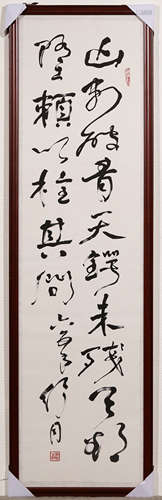 山刺破青天锷未残天欲
堕赖以柱其间